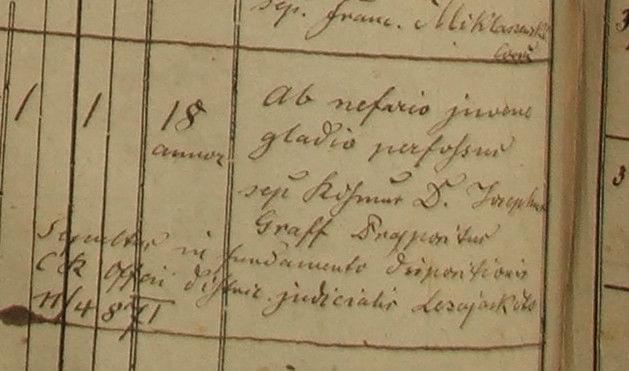 sep. Franc. Miklaszewski
Coop
1 1 18 Ab nefario juvene
annor gladio perfossus
sep Rssmus D. Josephus
Graff Praepositus
Sepultus in fundamento dispositionis
CK Officii District. judicialis Lezajsk dto
11/4 871